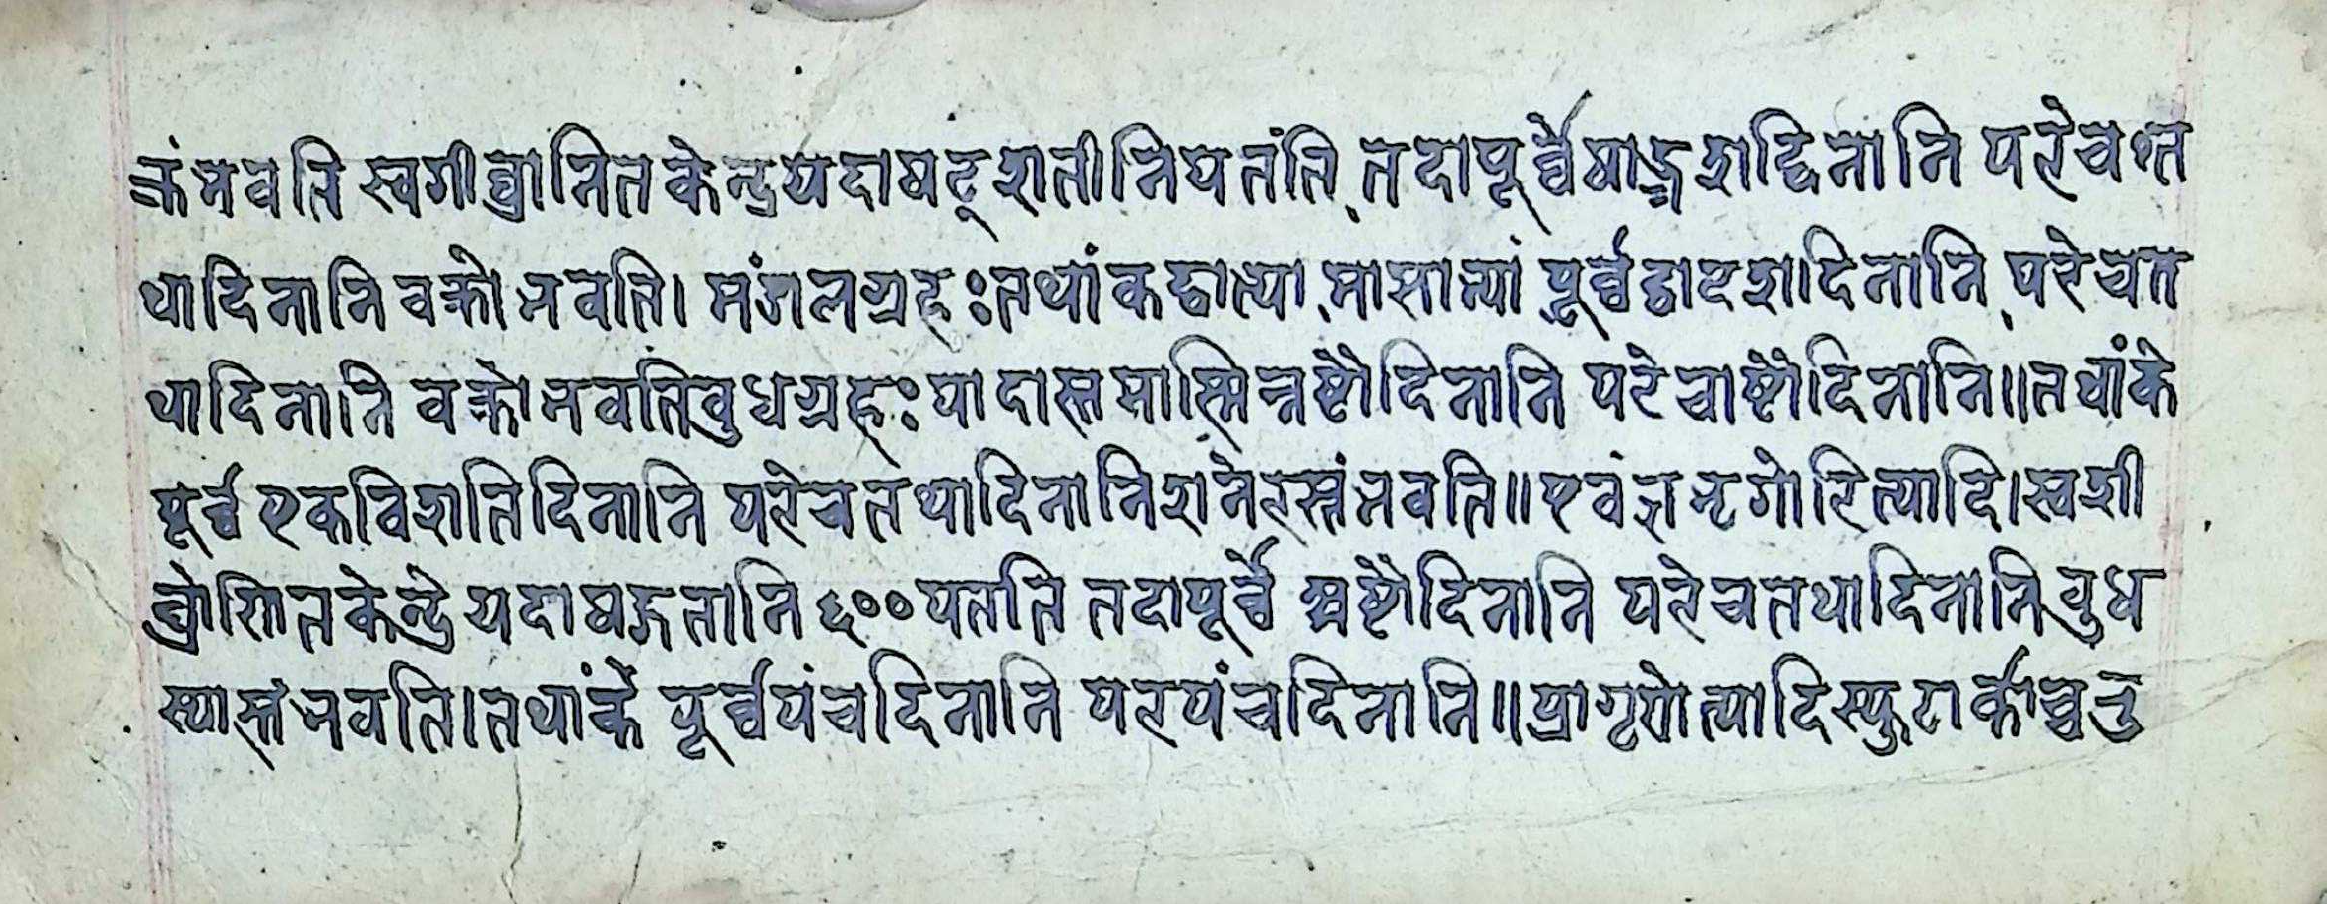 क्रंभवति स्वशीघ्रानितकेन्द्रयदाषट्शतीनिपतंति तदापूर्व्वेषोडशद्दिनानि परेचत
थादिनानि वक्रो भवति। मंगलग्रहः तथांकद्वात्या मासात्यां पूर्व्वद्वादशदिनानि परेचत
थादिनानि वक्रो भवतिबुधग्रहः पादास्तमास्मिन्नष्टौदिनानि परेचाष्टौदिनानि॥तथांके
पूर्व्वएकविशतिदिनानि परेचतथादिनानिशनेरस्तंभवति॥एवंज्ञभृगोरित्यादि।स्वशी
घ्रोणितकेन्द्रे यदाषड्शतानि ६००पतति तदापूर्व्वे अष्टौदिनानि परेचतथादिनानिबुध
स्यास्तंभवति।तथांके पूर्व्वपंचदिनानि परपंचदिनानि॥प्रागृणेत्यादिस्फुटार्काच्चतु